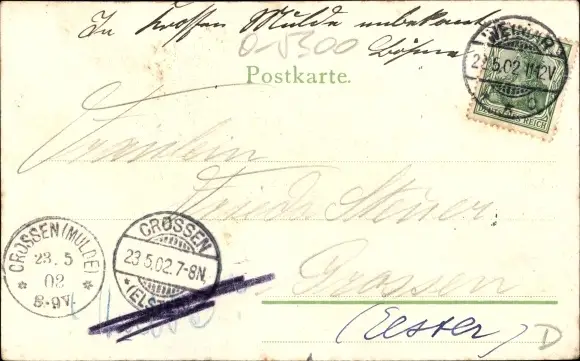 In Krossen Mulde unbekannt
Böhme
D-5300
Postkarte.
WEIMAR
23.5.02 11-12V
DEUTSCHES REICH
Fräulein
Frieda Steuer
CROSSEN (MULDE)
23.5
02
8-9V
CROSSEN
23.5.02.7-8N.
(ELSTER)
Crossen
(Elster)
D